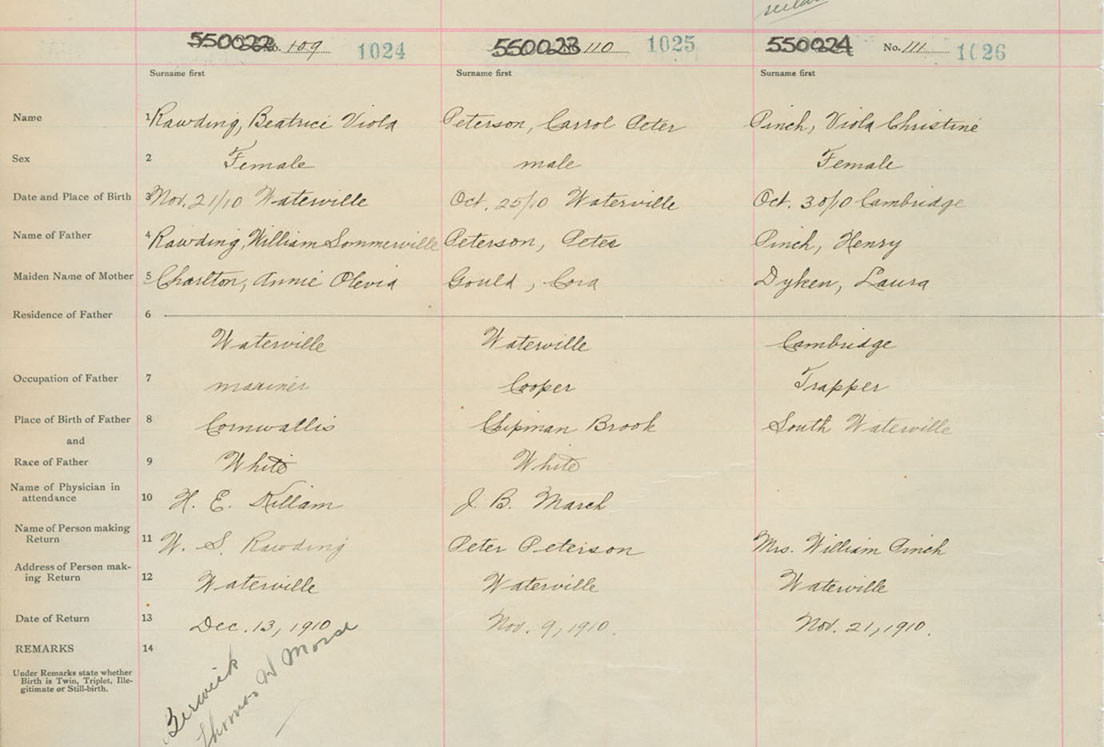 550022 No. 109 1024 550023 110 1025 550024 No. 111 1026
Surname first Surname first Surname first
Name 1 Rawding, Beatrice Viola Peterson, Carrol Peter Pinch, Viola Christine
Sex 2 Female male Female
Date and Place of Birth 3 Nov. 21/10 Waterville Oct. 25/10 Waterville Oct. 30/10 Cambridge
Name of Father 4 Rawding, William Sommerville Peterson, Peter Pinch, Henry
Maiden Name of Mother 5 Charlton, Annie Olevia Gould, Cora Dyken, Laura
Residence of Father 6
Waterville Waterville Cambridge
Occupation of Father 7 mariner Cooper Trapper
Place of Birth of Father 8 Cornwallis Chipman Brook South Waterville
and
Race of Father 9 White White
Name of Physician in
attendance 10 H. E. Killam J. B. March
Name of Person making
Return 11 W. S. Rawding Peter Peterson Mrs. William Pinch
Address of Person mak-
ing Return 12 Waterville Waterville Waterville
Date of Return 13 Dec. 13, 1910 Nov. 9, 1910. Nov. 21, 1910.
REMARKS 14
Under Remarks state whether
Birth is Twin, Triplet, Ille-
gitimate or Still-birth.
Berwick
Thomas W Morse